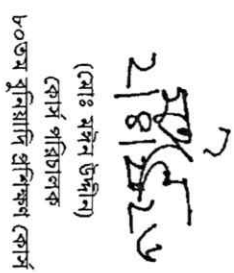 (মোঃ মঈন উদ্দীন)
কোর্স পরিচালক
৮০তম বুনিয়াদি প্রশিক্ষণ কোর্স